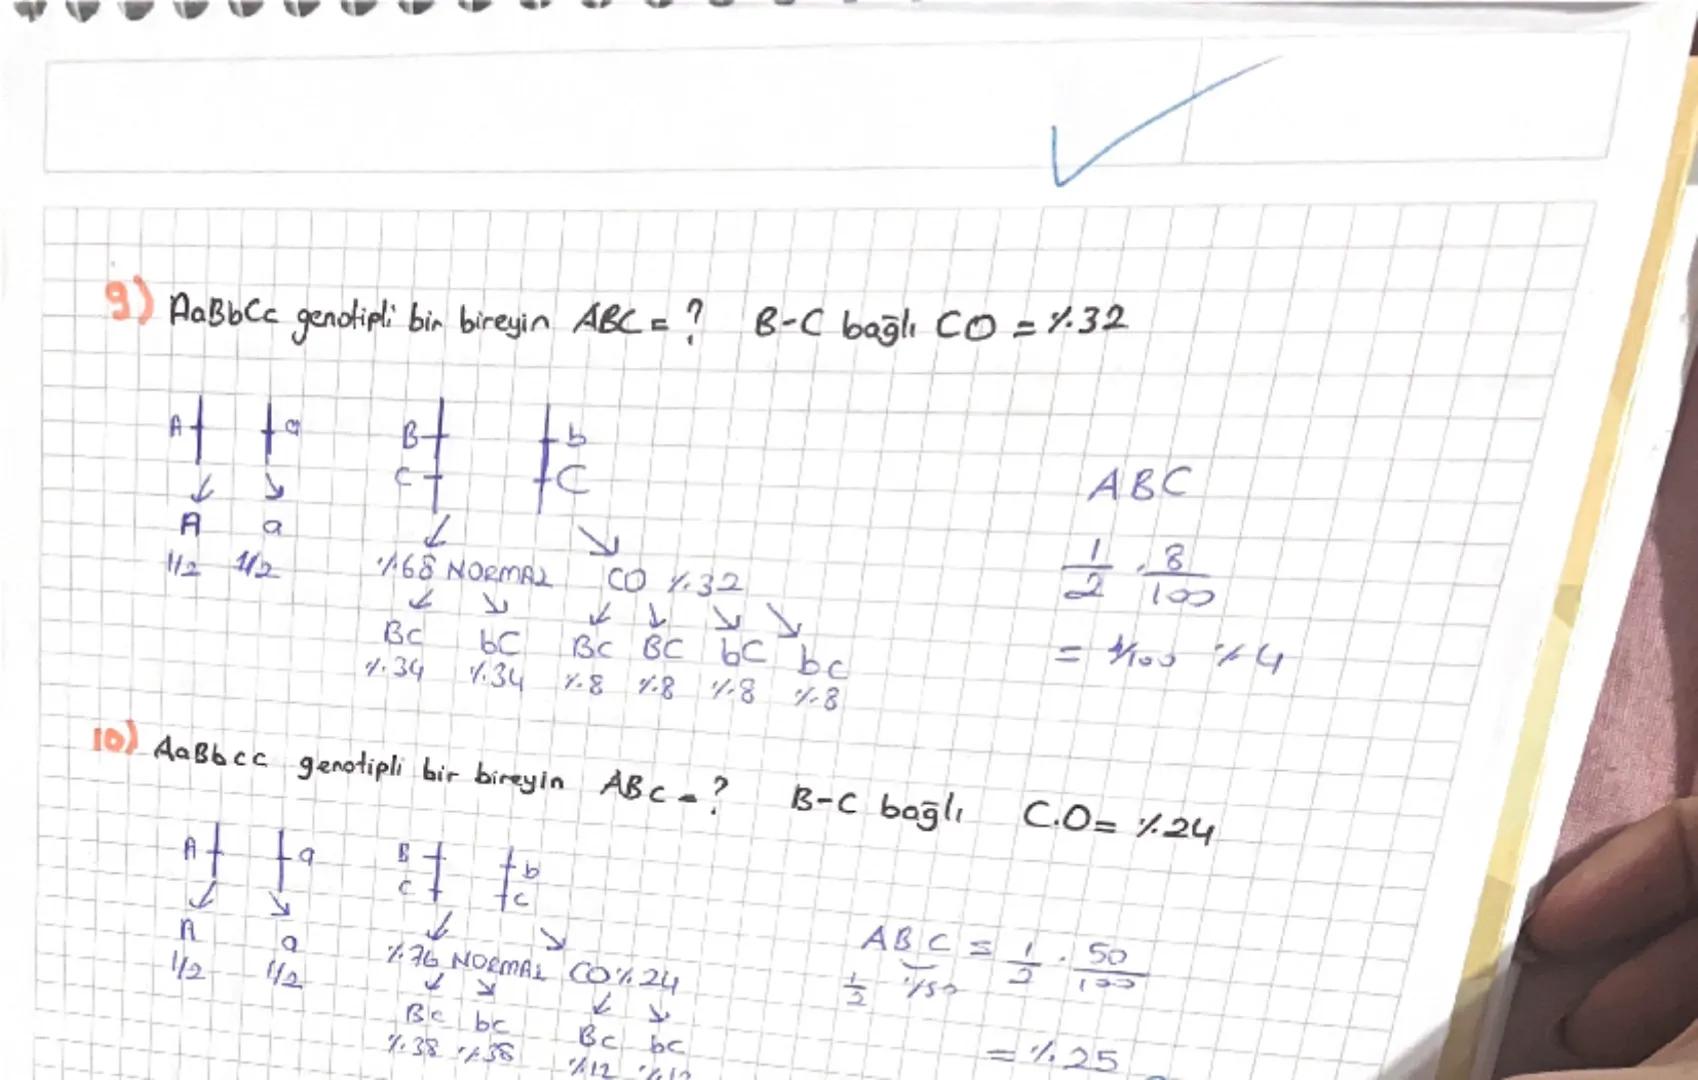 9) AaBbCc genotipli bir bireyin ABC = ? B-C bağlı CO = %32
A a B b
C C
A a
1/2 1/2 %68 NORMAL CO %32
Bc bC Bc BC bC bc
%34 %34 %8 %8 %8 %8
ABC
1/2 . 8/100
= 4/100 %4
10) AaBbcc genotipli bir bireyin ABc = ? B-C bağlı C.O = %24
A a B b
c c
A a
1/2 1/2 %76 NORMAL CO %24
Bc bc Bc bc
%38 %38 %12 %12
ABC = 1/2 . 50/100
1/2 %50
= %25